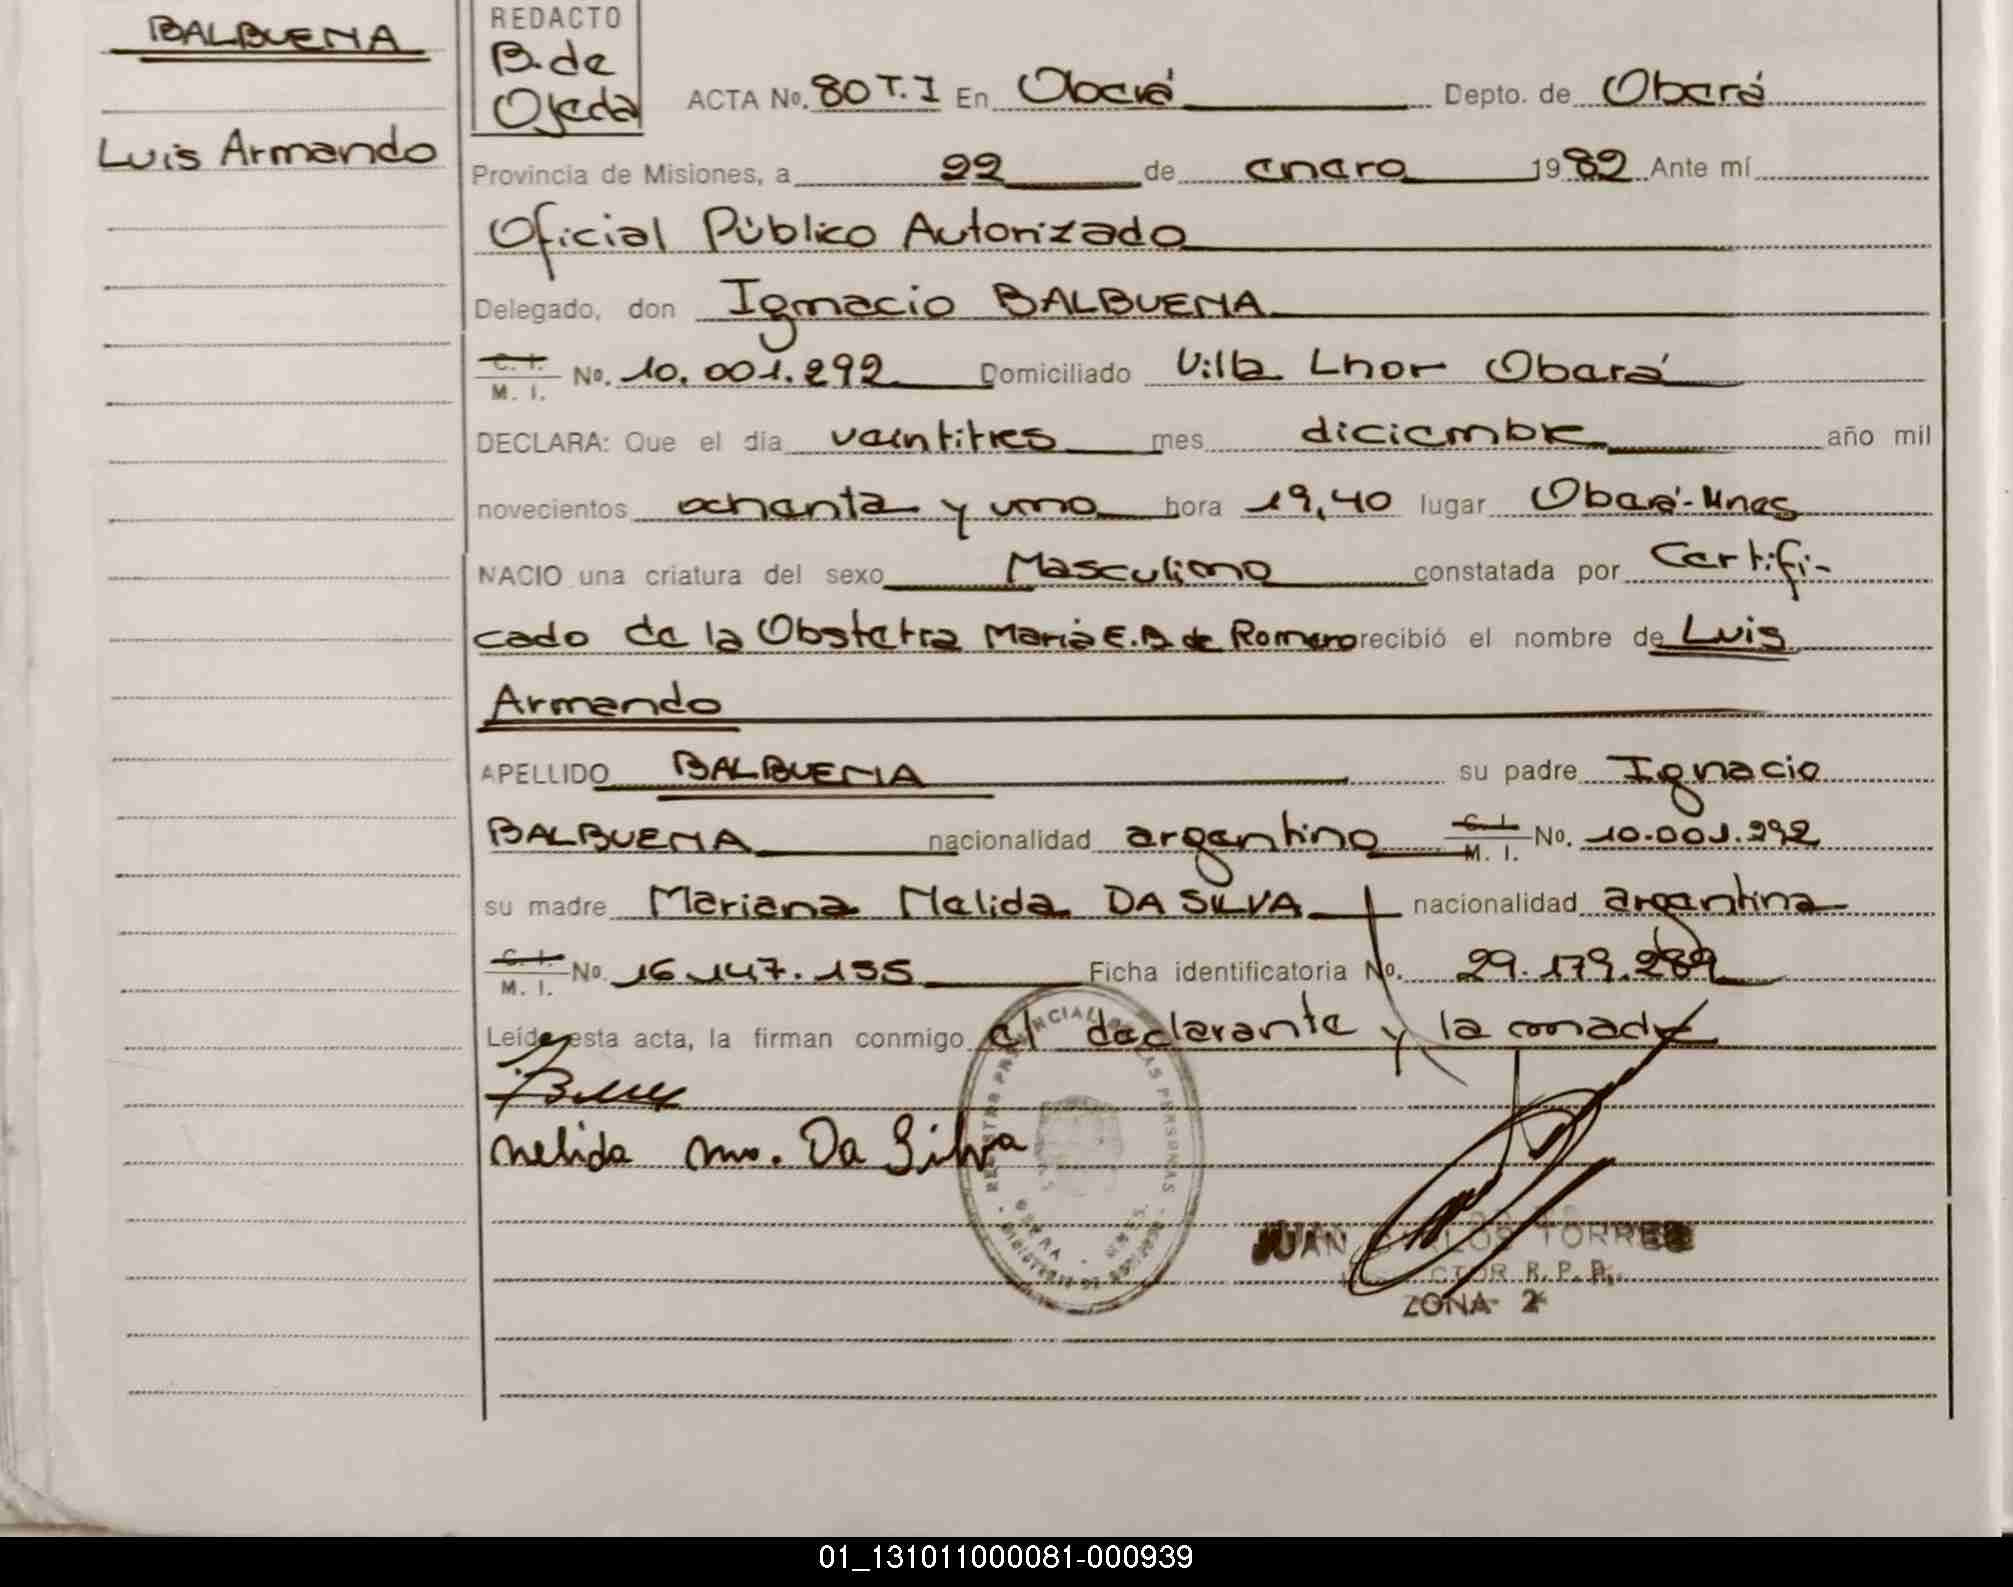 BALBUENA
Luis Armando
REDACTO
B. de
Ojeda
ACTA No. 80 T. I En Oberá Depto. de Oberá
Provincia de Misiones, a 22 de enero 1982 Ante mí
Oficial Público Autorizado
Delegado, don Ignacio BALBUENA
C. I.
M. I. No. 10.001.292 Domiciliado Villa Lhor Oberá
DECLARA: Que el dia veintitres mes diciembre año mil
novecientos ochenta y uno hora 19,40 lugar Oberá-Mnes
NACIO una criatura del sexo Masculino constatada por Certifi-
cado de la Obstetra Maria E. B. de Romero recibió el nombre de Luis
Armando
APELLIDO BALBUENA su padre Ignacio
BALBUENA nacionalidad argentino C. I. M. I. No. 10.001.292
su madre Mariana Nelida DA SILVA nacionalidad argentina
C. I.
M. I. No. 16.147.155 Ficha identificatoria No. 29.179.289
Leída esta acta, la firman conmigo el declarante y la madre
Nelida Ma. Da Silva
REGISTRO PROVINCIAL DE LAS PERSONAS
OBERA - MNES.
JUAN CARLOS TORRES
R. P. P.
ZONA 2
01_131011000081-000939